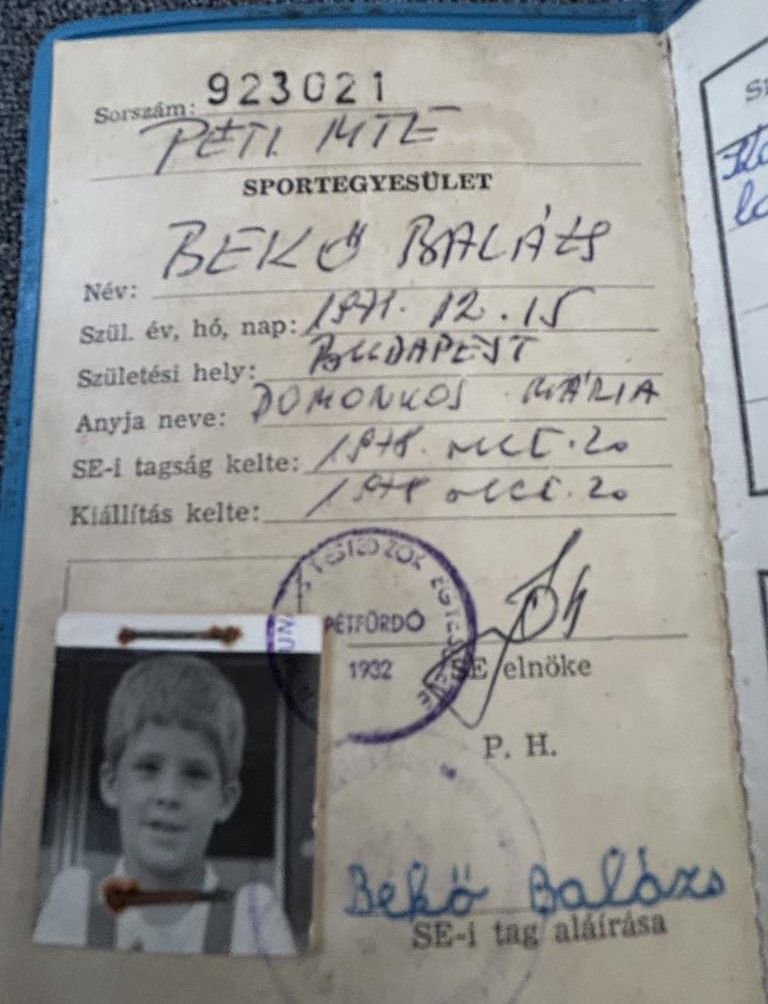 Sorszám: 923021
PÉTI MTE
SPORTEGYESÜLET
Név: BEKŐ BALÁZS
Szül. év, hó, nap: 1971. 12. 15
Születési hely: BUDAPEST
Anyja neve: DOMONKOS MÁRIA
SE-i tagság kelte: 1978. OKT. 20
Kiállítás kelte: 1978 OKT. 20
PÉTFÜRDŐ
1932
SE elnöke
P. H.
Bekő Balázs
SE-i tag aláírása